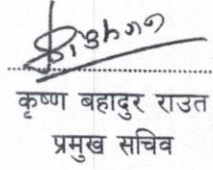 कृष्ण बहादुर राउत
प्रमुख सचिव